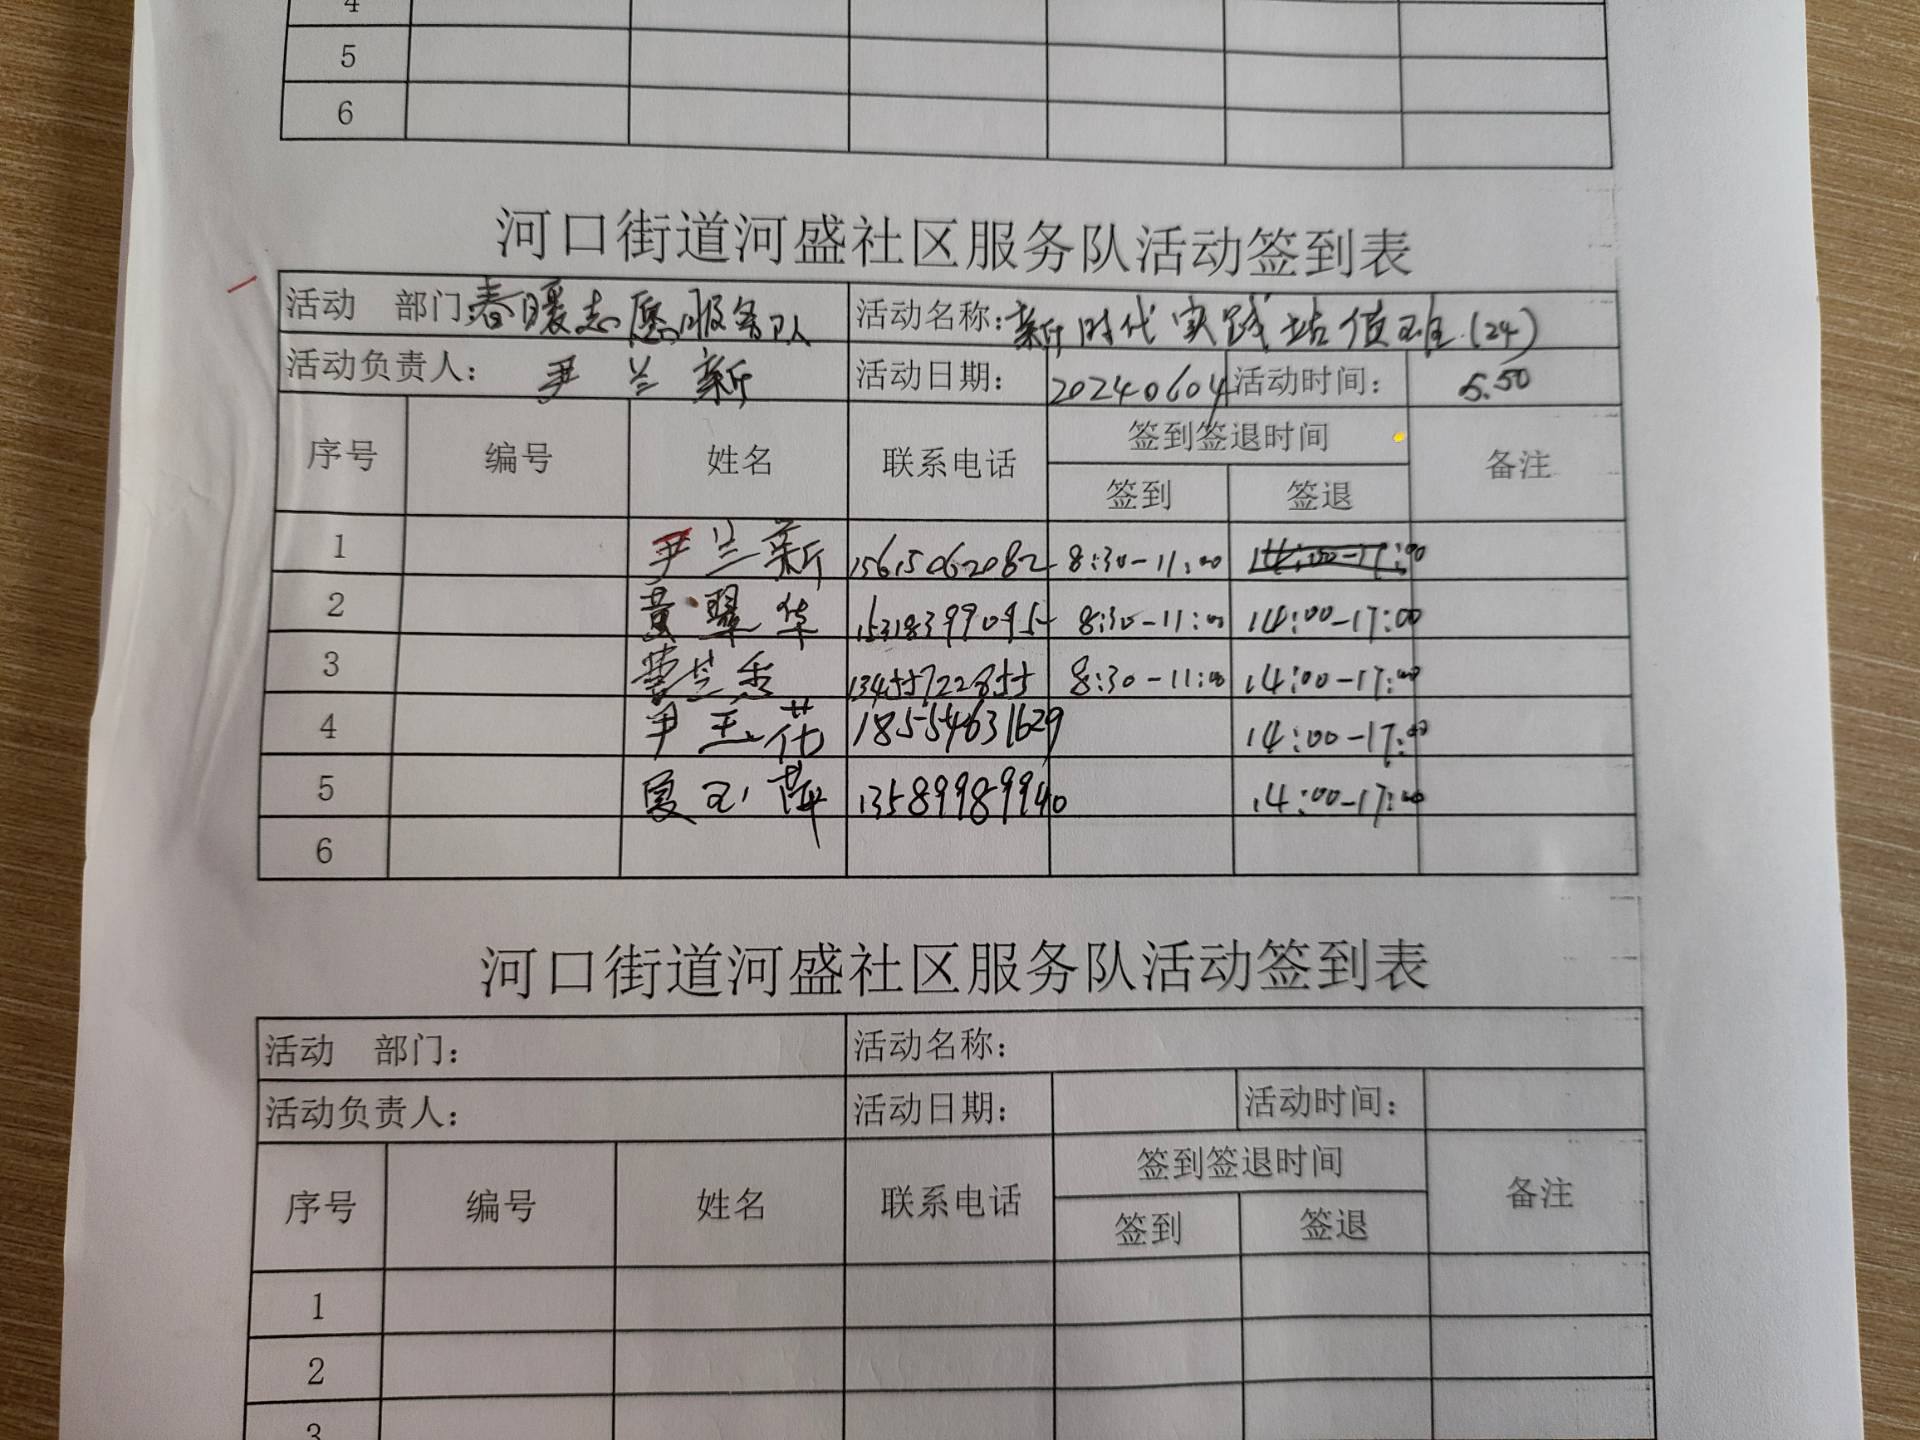 4
5
6
河口街道河盛社区服务队活动签到表
活动 部门:春暖志愿服务队 活动名称:新时代实践站值班(24)
活动负责人: 尹兰新 活动日期: 20240604 活动时间: 5.50
序号 编号 姓名 联系电话 签到签退时间 备注
签到 签退
1 尹兰新 15615062082 8:30-11:00 14:00-17:00
2 黄翠华 15318399095 8:30-11:00 14:00-17:00
3 曹芝香 13455722855 8:30-11:00 14:00-17:00
4 尹玉花 18554631629 14:00-17:00
5 夏玉萍 13589989940 14:00-17:00
6
河口街道河盛社区服务队活动签到表
活动 部门: 活动名称:
活动负责人: 活动日期: 活动时间:
序号 编号 姓名 联系电话 签到签退时间 备注
签到 签退
1
2
3